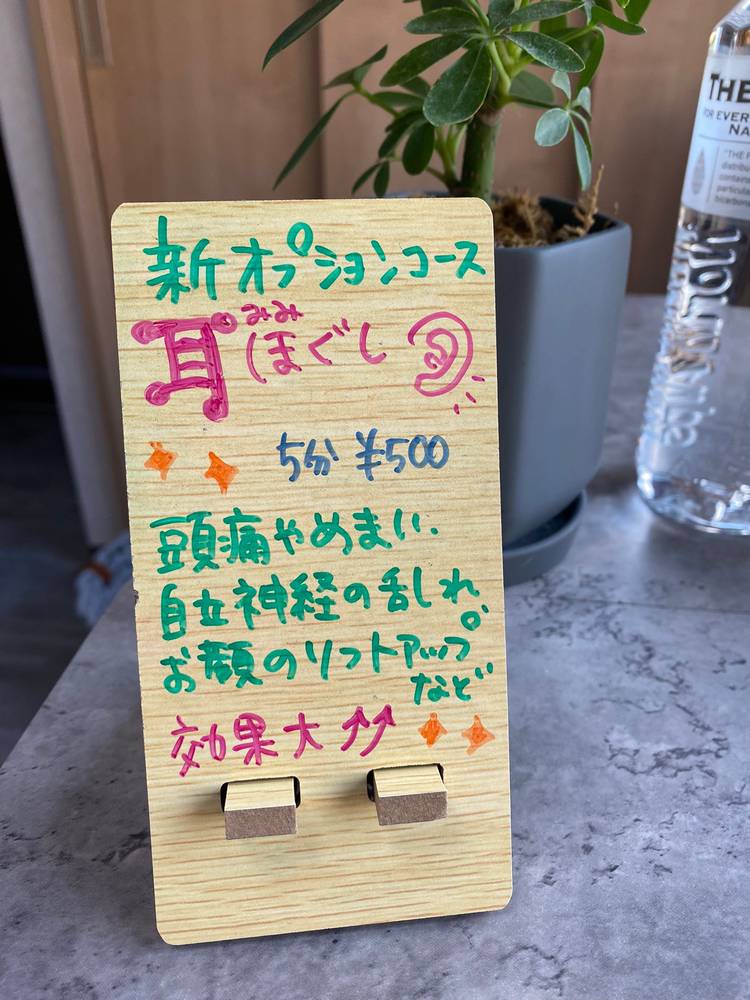 新オプションコース
みみ
耳ほぐし
5分 ¥500
頭痛やめまい.
自立神経の乱れ
お顔のリフトアップ
など
効果大↑↑
THE
FOR EVER
NA
"THE
distribu
particula
bicarbon